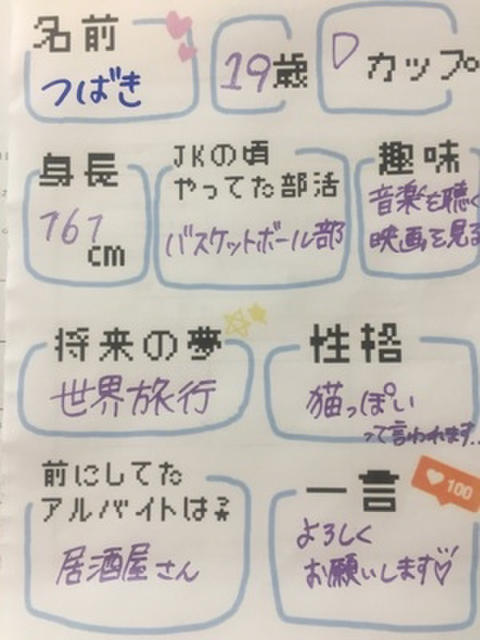 名前
つばき
19歳
Dカップ
身長
161
cm
JKの頃
やってた部活
バスケットボール部
趣味
音楽を聴く
映画を見る
将来の夢
世界旅行
性格
猫っぽい
って言われます..
前にしてた
アルバイトは?
居酒屋さん
一言
100
よろしく
お願いします♡